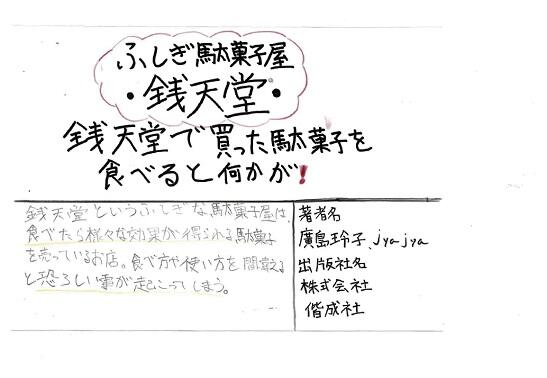 ふしぎ駄菓子屋
・銭天堂・
銭天堂で買った駄菓子を
食べると何かが!
銭天堂というふしぎな駄菓子屋は、
食べたら様々な効果が得られる駄菓子
を売っているお店。食べ方や使い方を間違える
と恐ろしい事が起こってしまう。
著者名
廣島玲子、jyajya
出版社名
株式会社
偕成社